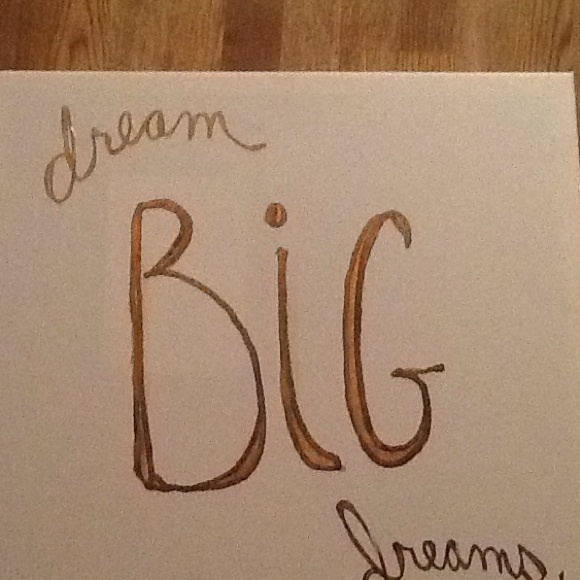 dream
BiG
dreams.